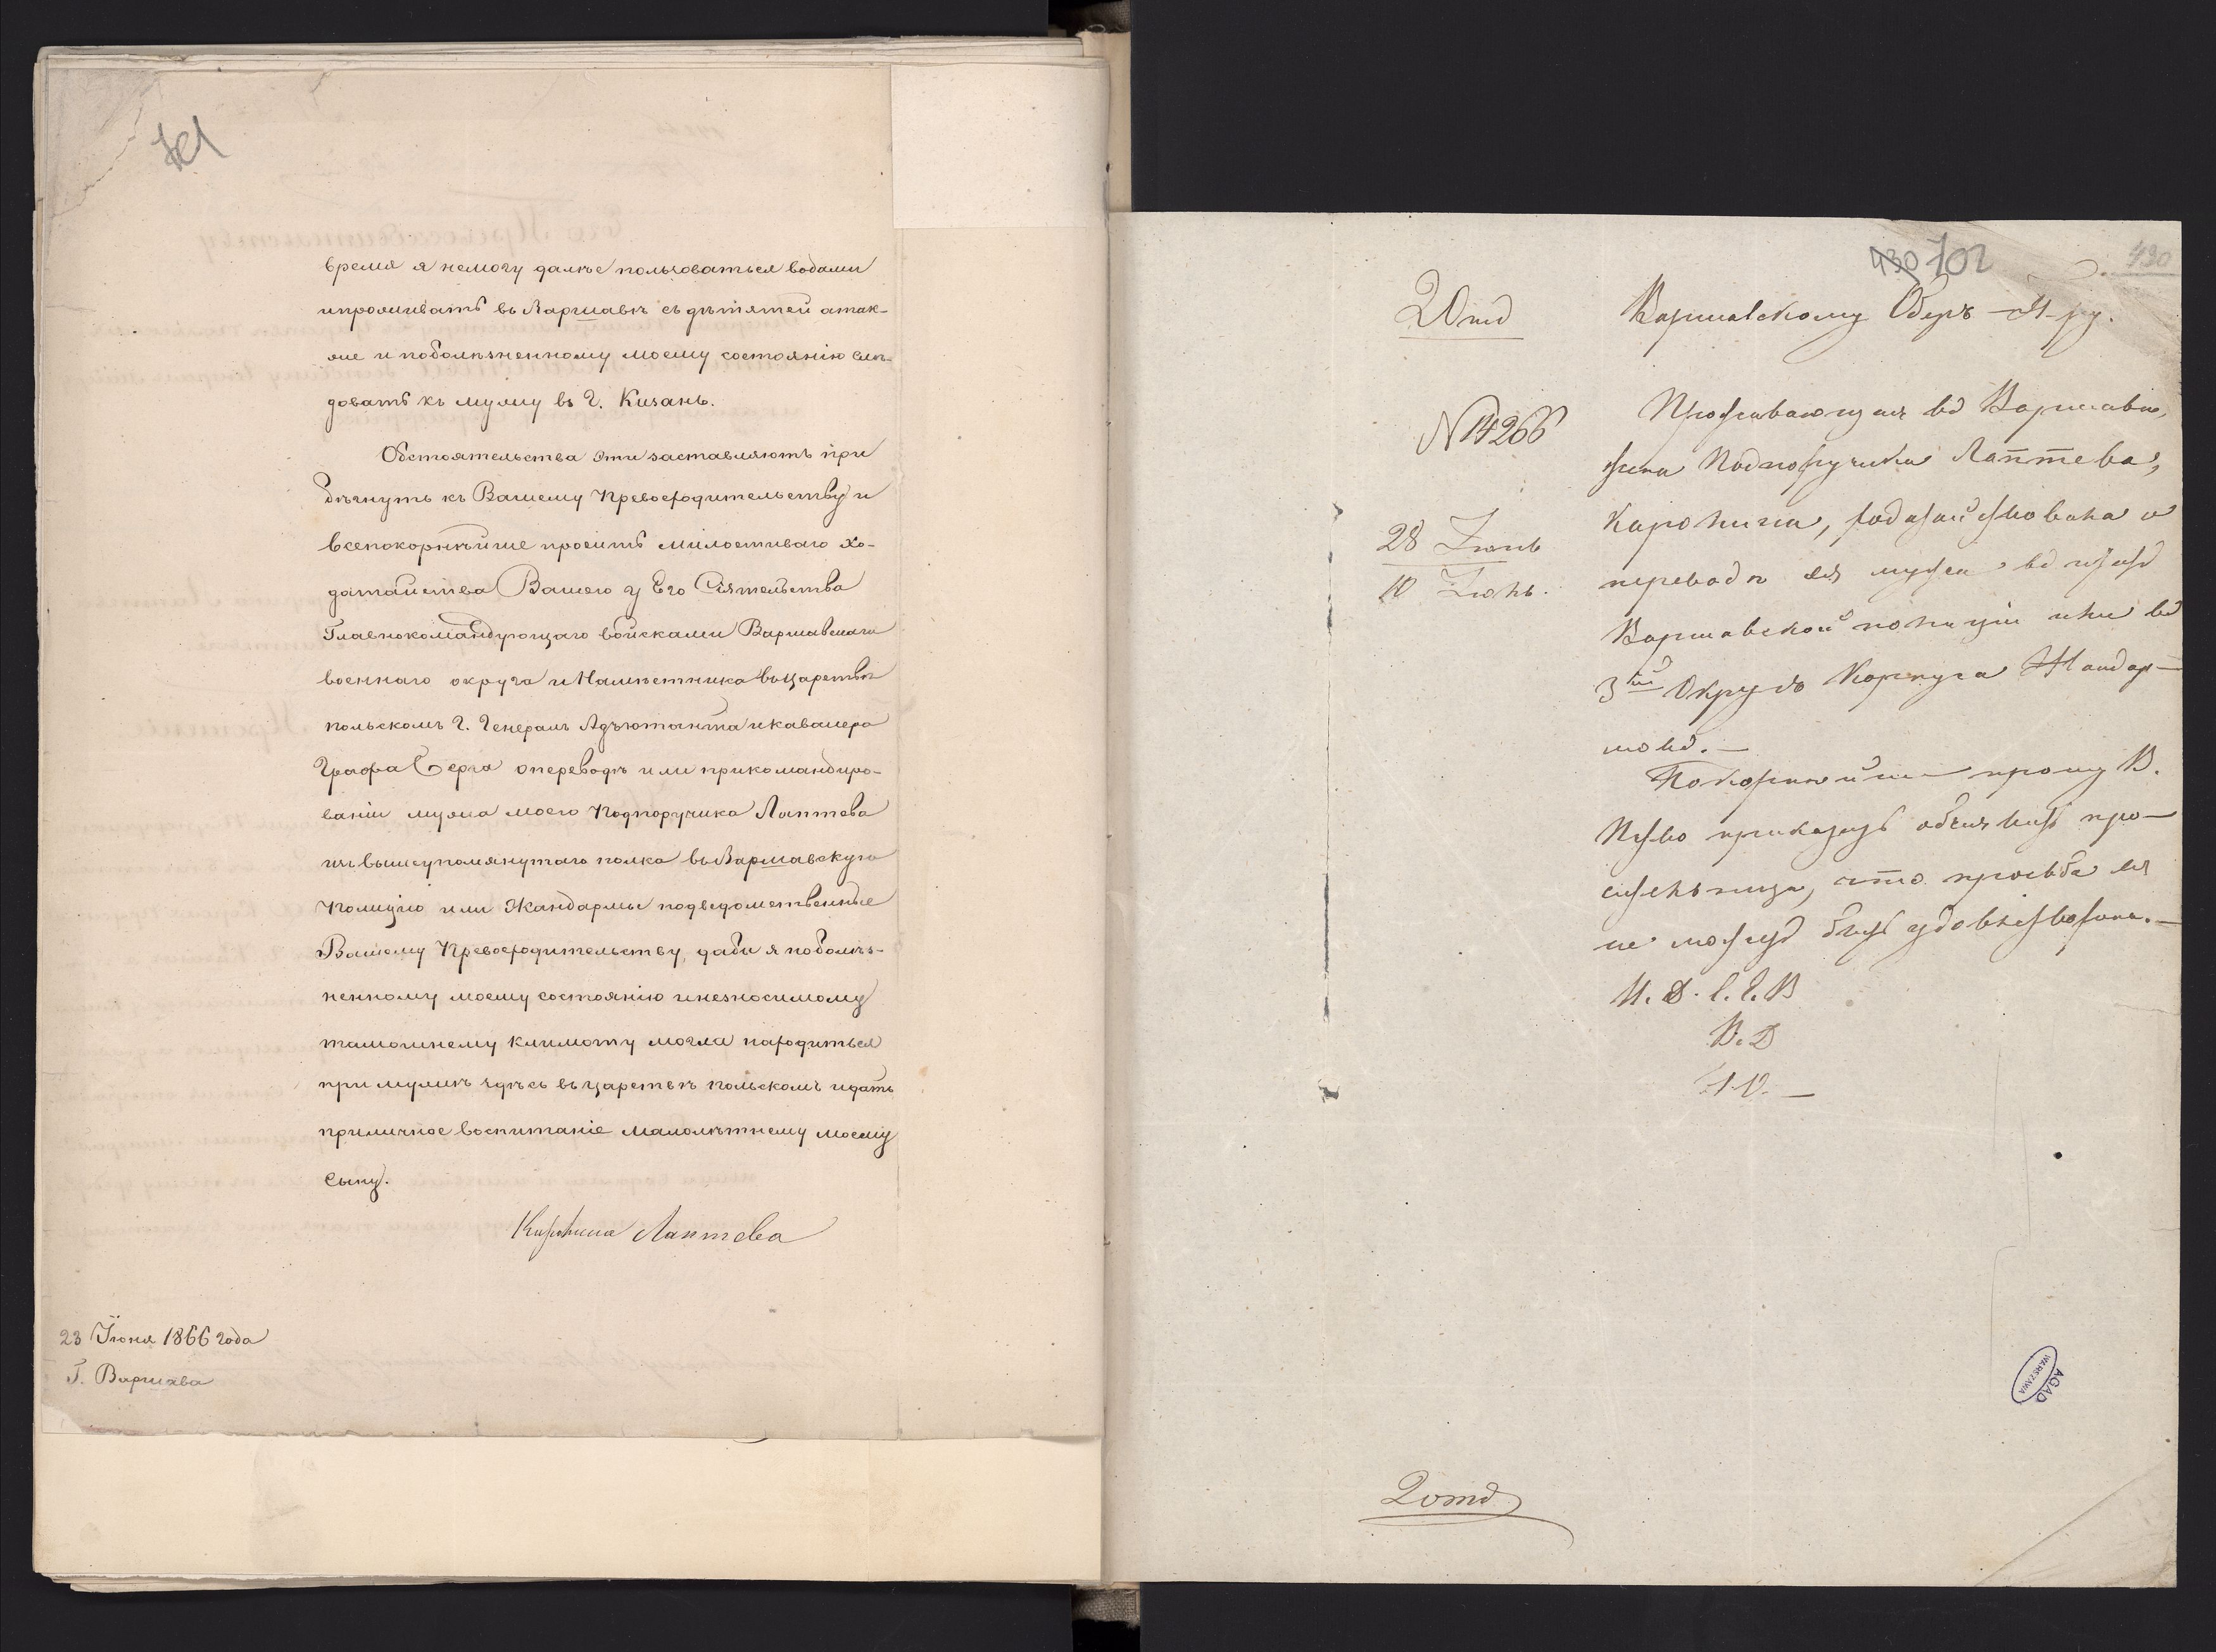 время я немогу далѣе пользоваться водами
ипроживать въ Варшавѣ съ дѣтятей атак-
же и поболѣзненному моему состоянію слѣ-
довать къ мужу въ г. Казань.
Обстоятельства эти заставляютъ при
бѣгнуть къ Вашему Превосходительству и
всепокорнѣйше просить милостиваго хо-
датайства Вашего у Его Сіятельства
Главнокомандующаго войсками Варшавскаго
военнаго округа и Намѣстника въ Царствѣ
польскомъ Г. Генералъ Адъютанта и кавалера
Графа Берга о переводѣ или прикомандиро-
ваніи мужа моего Подпоручика Лаптева
изъ вышеупомянутаго полка въ Варшавскую
Полицію или Жандармы подведомственные
Вашему Превосходительству, дабы я поболѣз-
ненному моему состоянію инезносимому
тамошнему климату могла находиться
при мужѣ здѣсь въ царствѣ польскомъ идать
приличное воспитаніе малолѣтнему моему
сыну.
Каролина Лаптева
23 Іюня 1866 года
Г. Варшава
430 702
430
2 Отд
Варшавскому Оберъ-П-ру.
N 14266
28 Іюнь
10 Іюль.
Проживающая въ Варшавѣ,
жена Подпоручика Лаптева,
Каролина, ходатайствовала о
переводѣ ея мужа въ штатъ
Варшавской полиціи или въ
3й Округъ Корпуса Жандар-
мовъ.—
Покорнѣйше прошу В.
Пр-во приказать объявить про-
сительницѣ, что просьба ея
не можетъ быть удовлетворена.—
И. Д. С. Е. В
В. Д
2 отд
AGAD
WARSZAWA